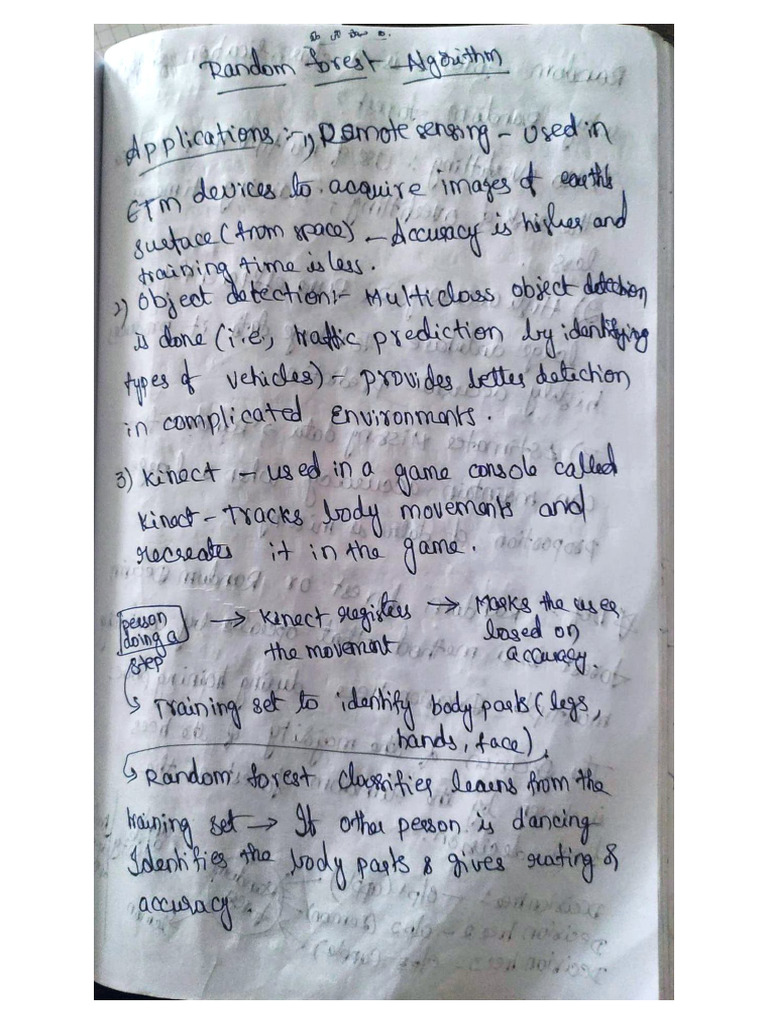 Random forest Algorithm
Applications :- 1) Remote sensing - Used in
ETM devices to acquire images of earth's
surface (from space) - Accuracy is higher and
training time is less.
2) Object detection:- Multiclass object detection
is done (i.e, traffic prediction by identifying
types of vehicles) - provides better detection
in complicated environments.
3) Kinect - used in a game console called
kinect - Tracks body movements and
recreates it in the game.
person doing a step → Kinect registers the movement → Marks the user based on accuracy.
Training set to identify body parts (legs,
hands, face)
Random forest classifier learns from the
training set → If other person is dancing
Identifies the body parts & gives rating &
accuracy.